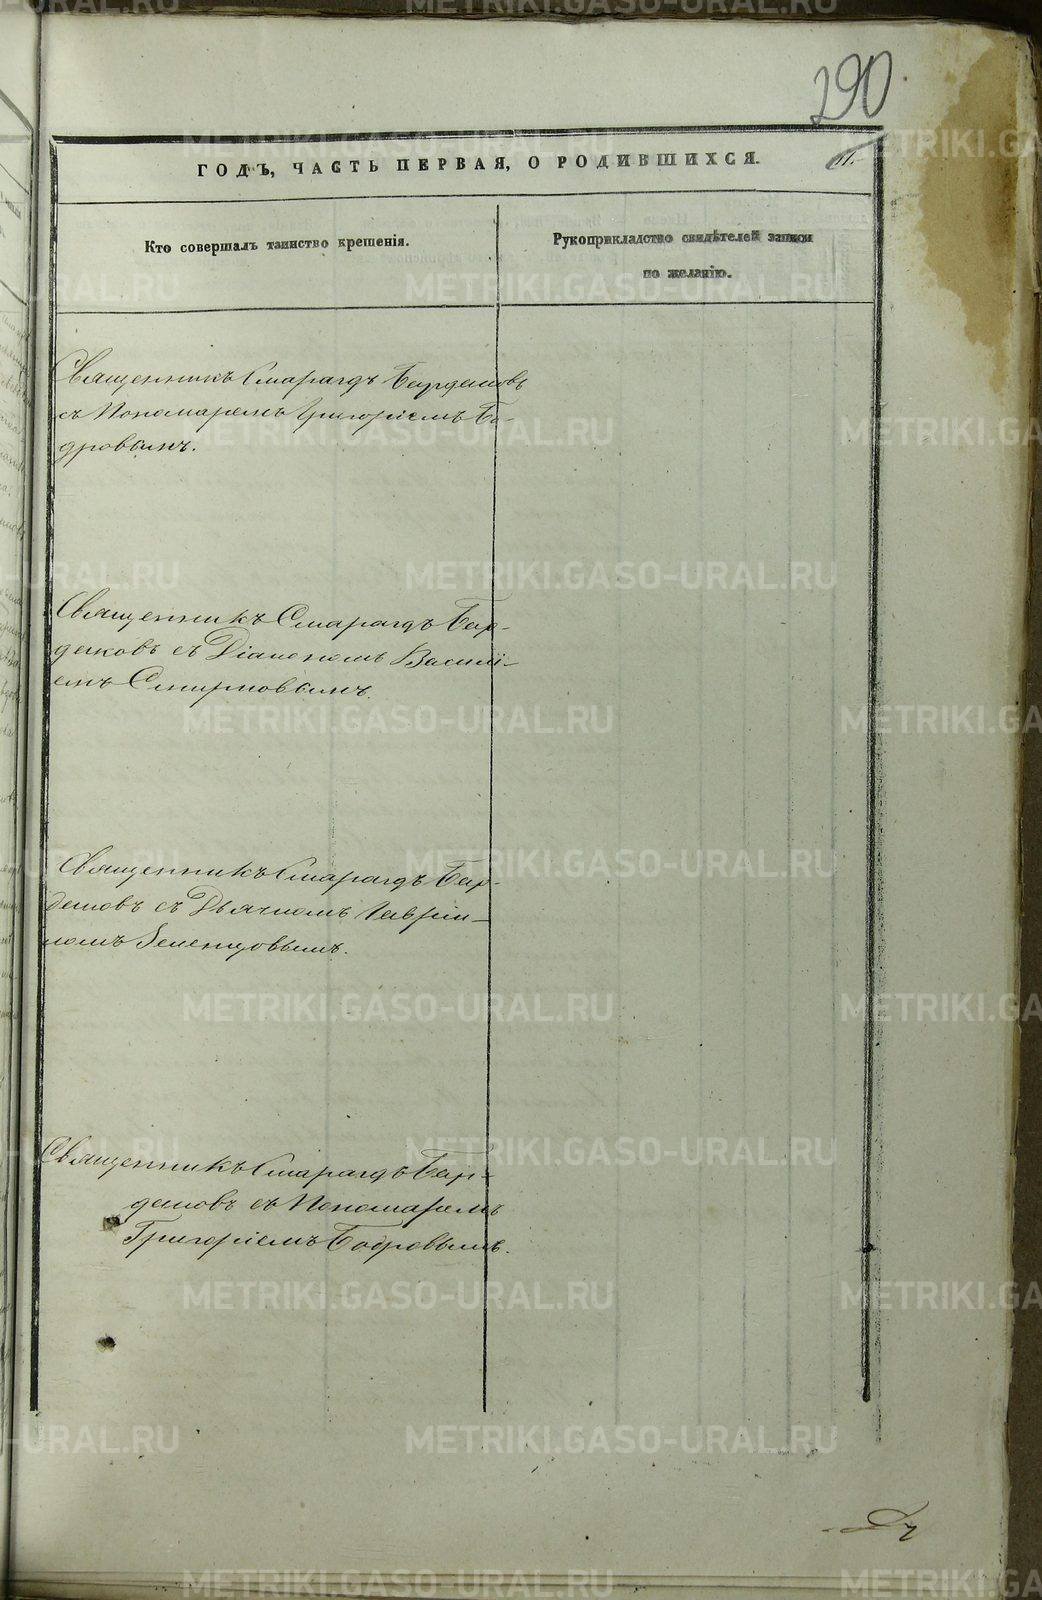 290
ГОДЪ, ЧАСТЬ ПЕРВАЯ, О РОДИВШИХСЯ.
Кто совершалъ таинство крещенія.
Рукоприкладство свидѣтелей записи
по желанію.
Священникъ Смарагдъ Бардаковъ
съ Пономаремъ Григоріемъ Бо-
дровымъ.
Священникъ Смарагдъ Бар-
даковъ съ Діакономъ Васиlі-
емъ Смирновымъ.
Священникъ Смарагдъ Бар-
даковъ съ Дьячкомъ Гавріи-
ломъ
Священникъ Смарагдъ Бар-
даковъ съ Пономаремъ
Григоріемъ Бодровымъ.
METRIKI.GASO-URAL.RU